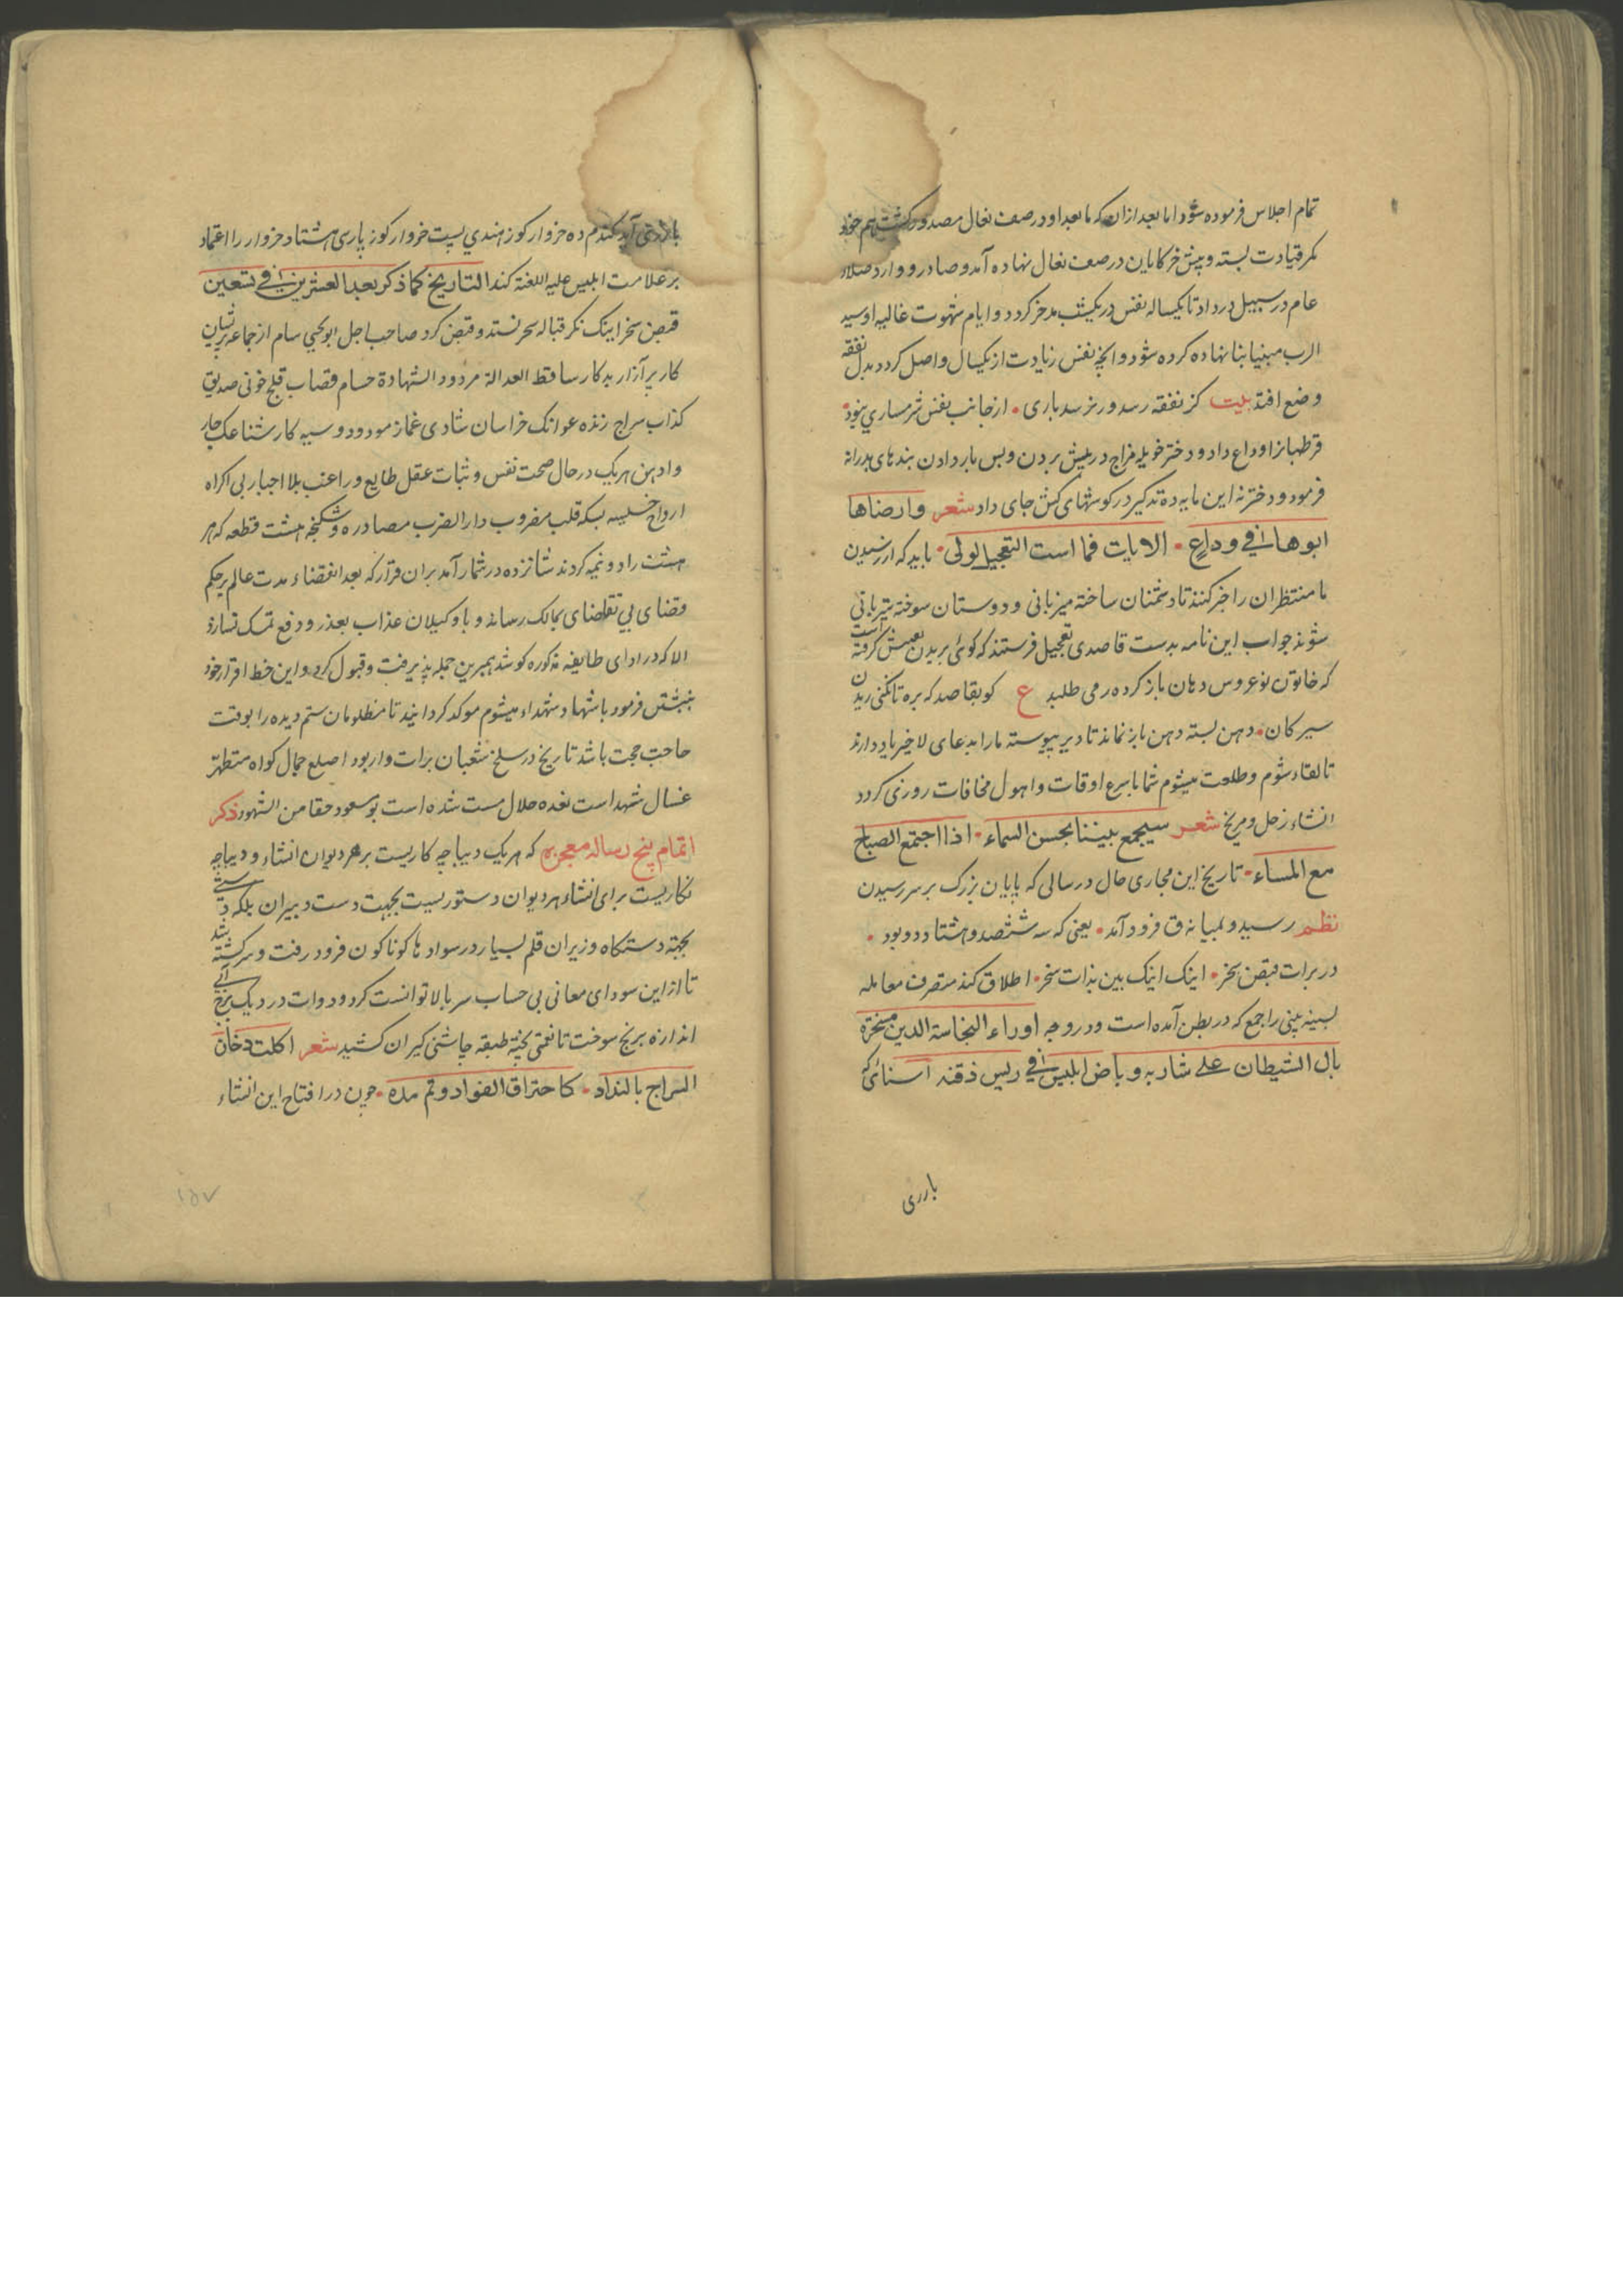 تمام اجلاس فرموده شود اما بعد ازان که ما بعد او در صف نعال مصدور کشت هم خود
کمر قیادت بسته و پیش خر کابان در صف نعال نهاده آمد و صادر و وارد صلاء
عام در سبیل درداد تا یکساله نفس در یکشب مدخر کردد و ایام شهوت غالیه اوسید
الرب مبنیا بنا نهاده کرده شود و انچه نفس زیادت از یکسال واصل کردد بدل نفقه
وضع افتد بیت کز نفقه رسد ور نرسد باری • از جانب نفس شرمساری نبود •
قرطبانرا وداع داد و دختر خویله مزاج در پیش بردن و پس بار دادن پندهای پدرانه
فرمود و دختر نه این مایه ده تذکیر در کوشهای کش جای داد شعر وارضاها
ابوها فی وداع • الا یات فما است التعجیل اولی • باید که از رسیدن
ما منتظران را خبر کنند تا دشمنان ساخته میزبانی و دوستان سوخته
شوند جواب این نامه بدست قاصدی تعجیل فرستند که کوئی بریدن نعیش کرفته است
که خاتون نو عروس دهان باز کرده ره می طلبد ع کو بقاصد که بره تا نکنی ریدن
سیر کان • دهن بسته دهن باز نماند تا دیر پیوسته ما را بدعای لا خیر یاد دارند
تا لقاء شوم و طلعت میشوم شما باسرع اوقات و اهول مخافات روزی کردد
انشاء زحل و مریخ شعر سیجمع بیننا بحسن السماء • اذا اجتمع الصباح
مع المساء • تاریخ این مجاری حال در سالی که پایان بزرک بر سر رسیدن
نظم رسید و لمیانه ق فرود آمد • یعنی که سه ششصد و هشتاد و دو بود •
در برات قبض سخر • اینک اینک بین بذات سخر • اطلاق کند متصرف معامله
بسینه بینی راجع که در بطن آمده است و در وجه اوراء النجاسة الدین مسخره
بال الشیطان علی شاربه و باض ابلیس فی ریس ذقنه اسنائی که
باردی
باردی آید کندم ده خروار کوز هندی بیست خروار کوز پارسی هشتاد خروار را اعتماد
بر علامت ابلیس علیه اللعنة کند التاریخ کما ذکر بعد العشرین فی تسعین
قبض سخر اینک نکر قباله سحر نستد و قبض کرد صاحب اجل ابو یحیی سام از جماعه
کار پر آزار بد کار ساقط العدالة مردود الشهادة حسام قصاب قلج خونی صدیق
کذاب سراج زنده عوانک خراسان شادی غماز مودود و سیه کار شناعک جابر
وادهن هریک در حال صحت نفس و ثبات عقل طایع و راغب بلا اجبار بی اکراه
ارواح خسیسه بسکه قلب مضروب دار الضرب مصادره و شکنجه هشت قطعه که هر
هشت را دو نیمه کردند شانزده در شمار آمد بران قرار که بعد انقضاء مدت عالم بر حکم
قضای بی تقاضای بمالک رساند و با وکیلان عذاب بعذر و دفع تمسک نسازد
الا که در ادای طایفه مذکوره کوشد همبرین جمله پذیرفت و قبول کرد و این خط اقرار خود
نبشتن فرمود باشهاد شهداء میشوم موکد کردانید تا مظلومان ستم دیده را بوقت
حاجت حجت باشد تاریخ در سلخ شعبان برات وار بود اصلع جمال کواه متظهر
غسال شهد است نغده حلال مست شده است بو سعود حقا من الشهود ذکر
اتمام پنج رساله معجزه که هر یک دیباچه کاریست بر هر دیوان انشاء و دیباچه
نکاریست برای انشاء هر دیوان دستوریست بجهت دست دبیران بلکه
بجهة دستکاه وزیران قلم بسیار در سوادها کوناکون فرود رفت و سر کشته شد
تا از این سودای معانی بی حساب سر بالا توانست کرد و دوات در دیک برنج
اندازه برنج سوخت تا نغمتی پخته طبقه چاشنی کیران کشید شعر اکلت دخان
السراج بالنداد • کاحتراق الفواد وتم مده • چون در افتتاح این انشاء
۱۵۷